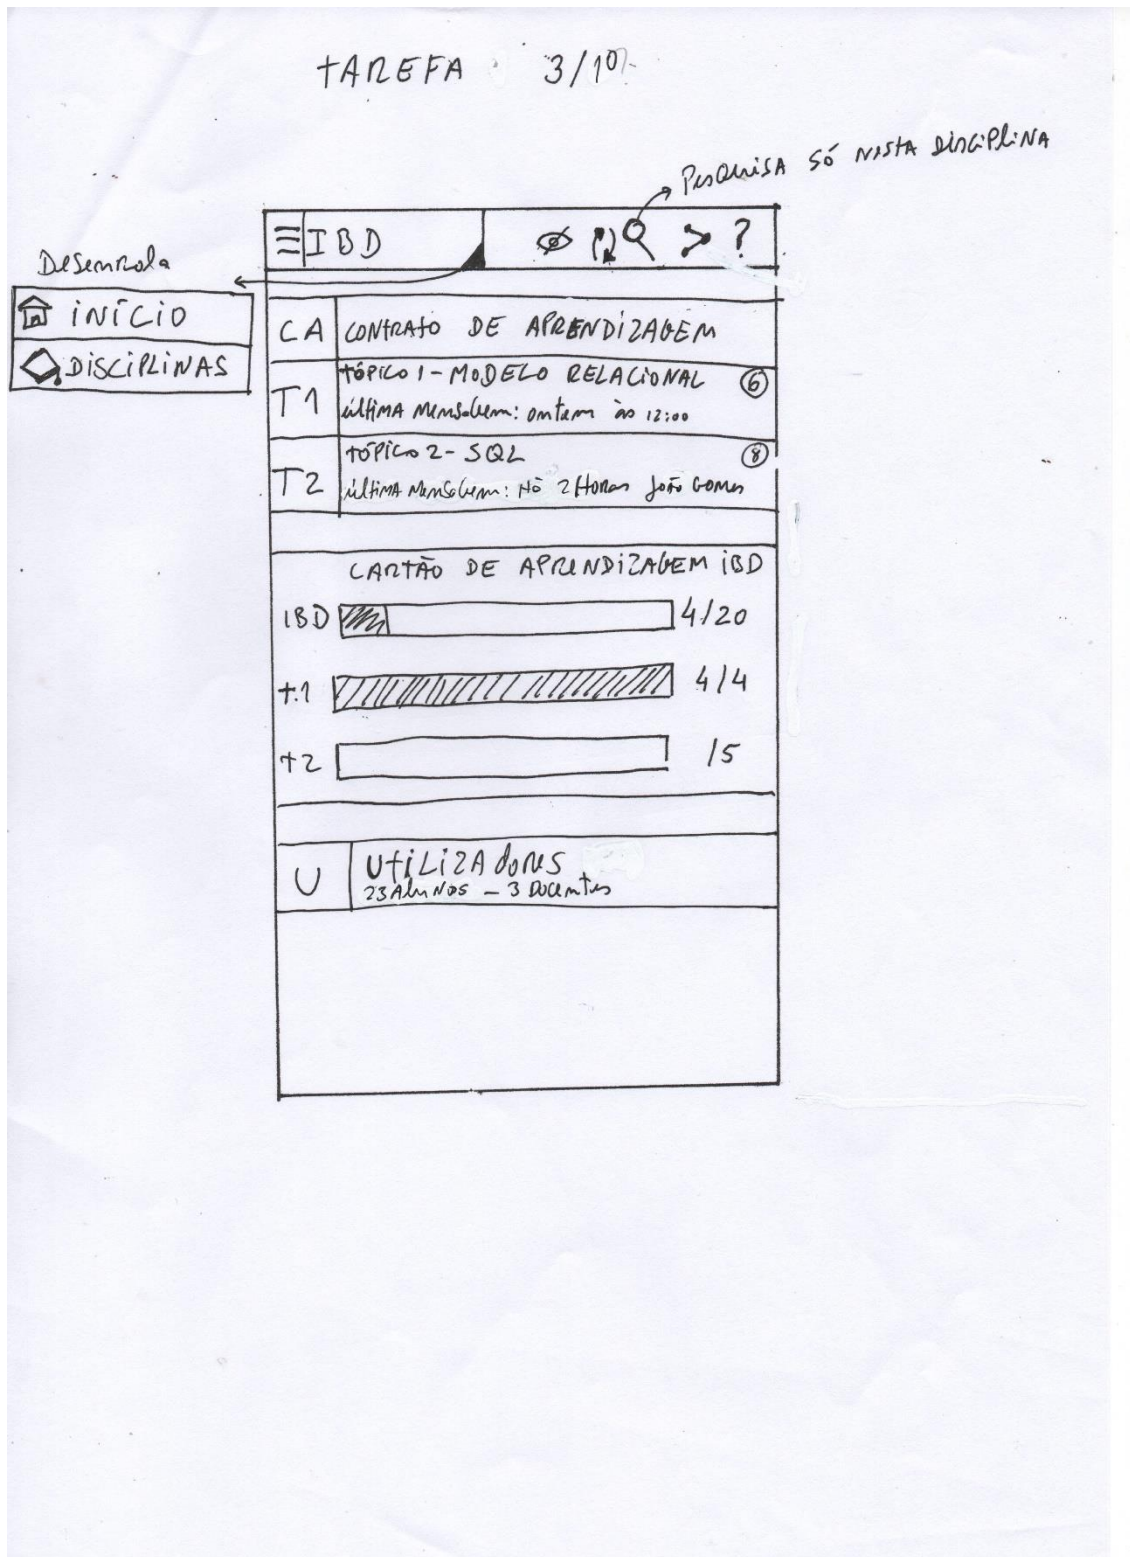 TAREFA 3/10
PESQUISA SÓ NESTA DISCIPLINA
IBD ?
Desenrola
INÍCIO
DISCIPLINAS
CA CONTRATO DE APRENDIZAGEM
T1 TÓPICO 1 - MODELO RELACIONAL 6
última mensagem: ontem às 12:00
T2 TÓPICO 2 - SQL 8
última mensagem: Há 2 Horas João Gomes
CARTÃO DE APRENDIZAGEM IBD
IBD 4/20
t.1 4/4
t2 /5
U Utilizadores
23 Alunos - 3 Docentes